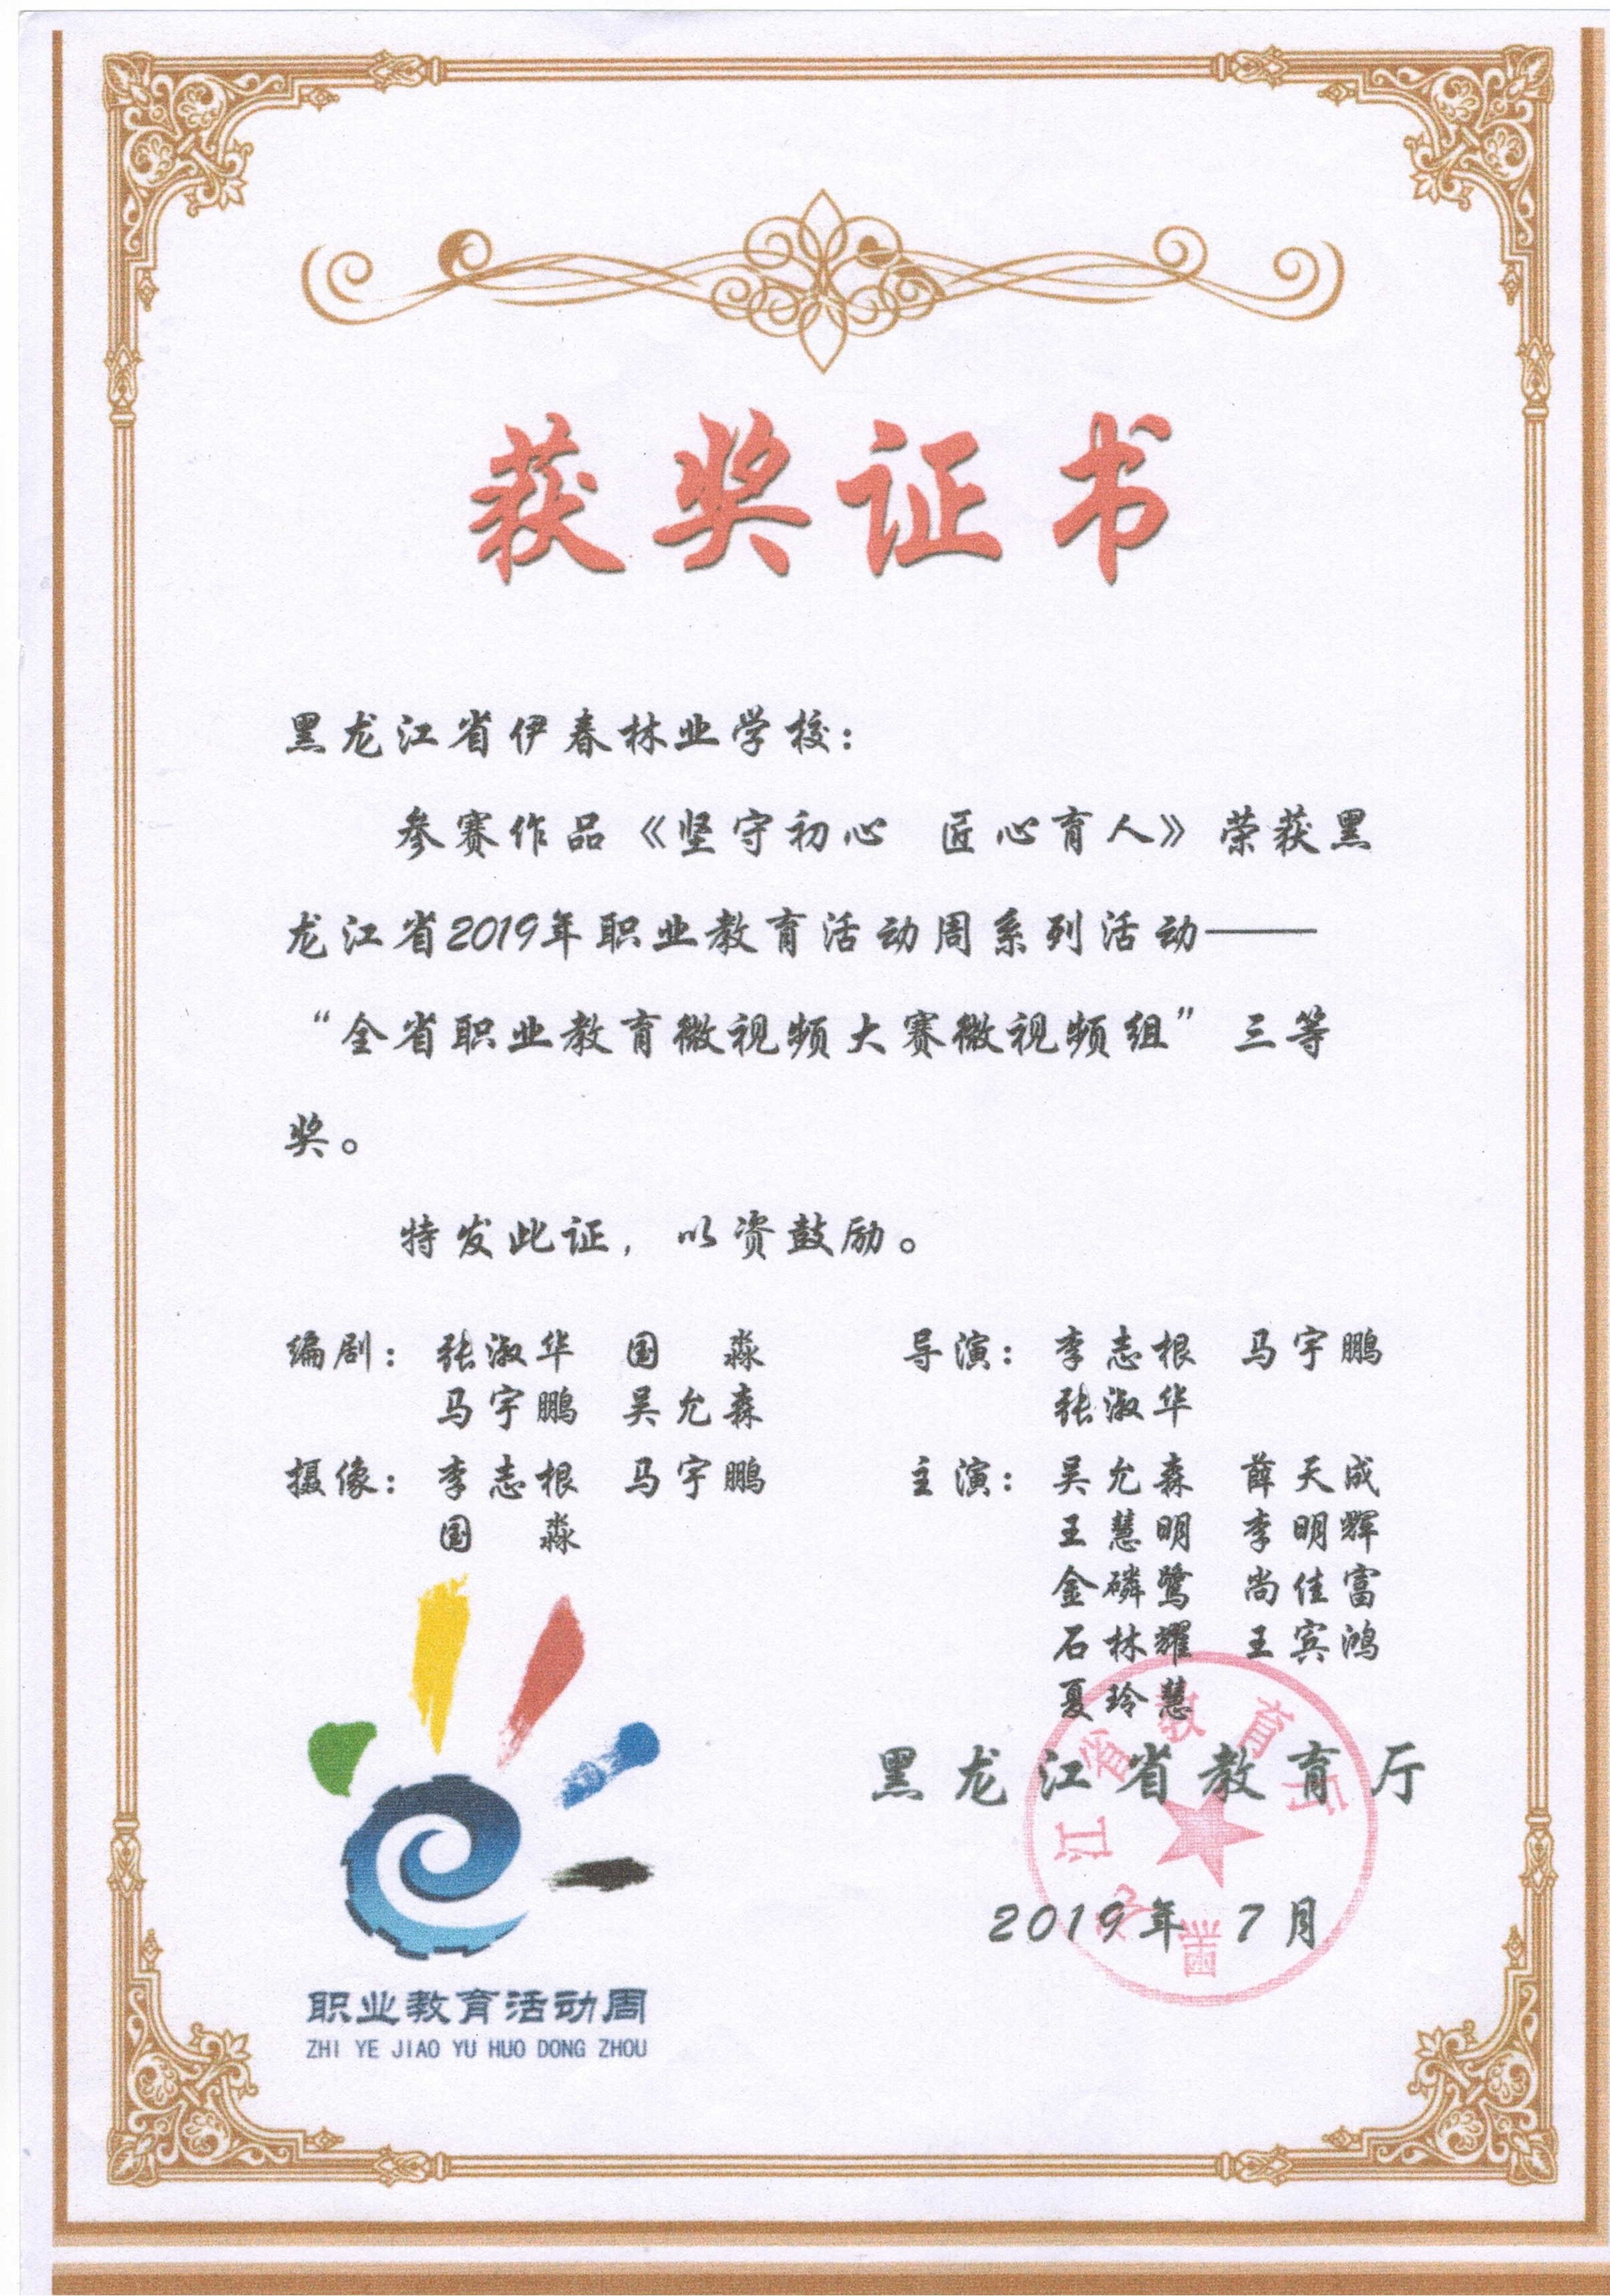 获奖证书
黑龙江省伊春林业学校：
参赛作品《坚守初心 匠心育人》荣获黑
龙江省2019年职业教育活动周系列活动——
“全省职业教育微视频大赛微视频组”三等
奖。
特发此证，以资鼓励。
编剧：张淑华 国 淼 导演：李志根 马宇鹏
马宇鹏 吴允森 张淑华
摄像：李志根 马宇鹏 主演：吴允森 薛天成
国 淼 王慧明 李明辉
金磷鹭 尚佳富
石林耀 王宾鸿
夏玲慧
黑龙江省教育厅
2019年 7月
黑龙江省教育厅
职业教育活动周
ZHI YE JIAO YU HUO DONG ZHOU